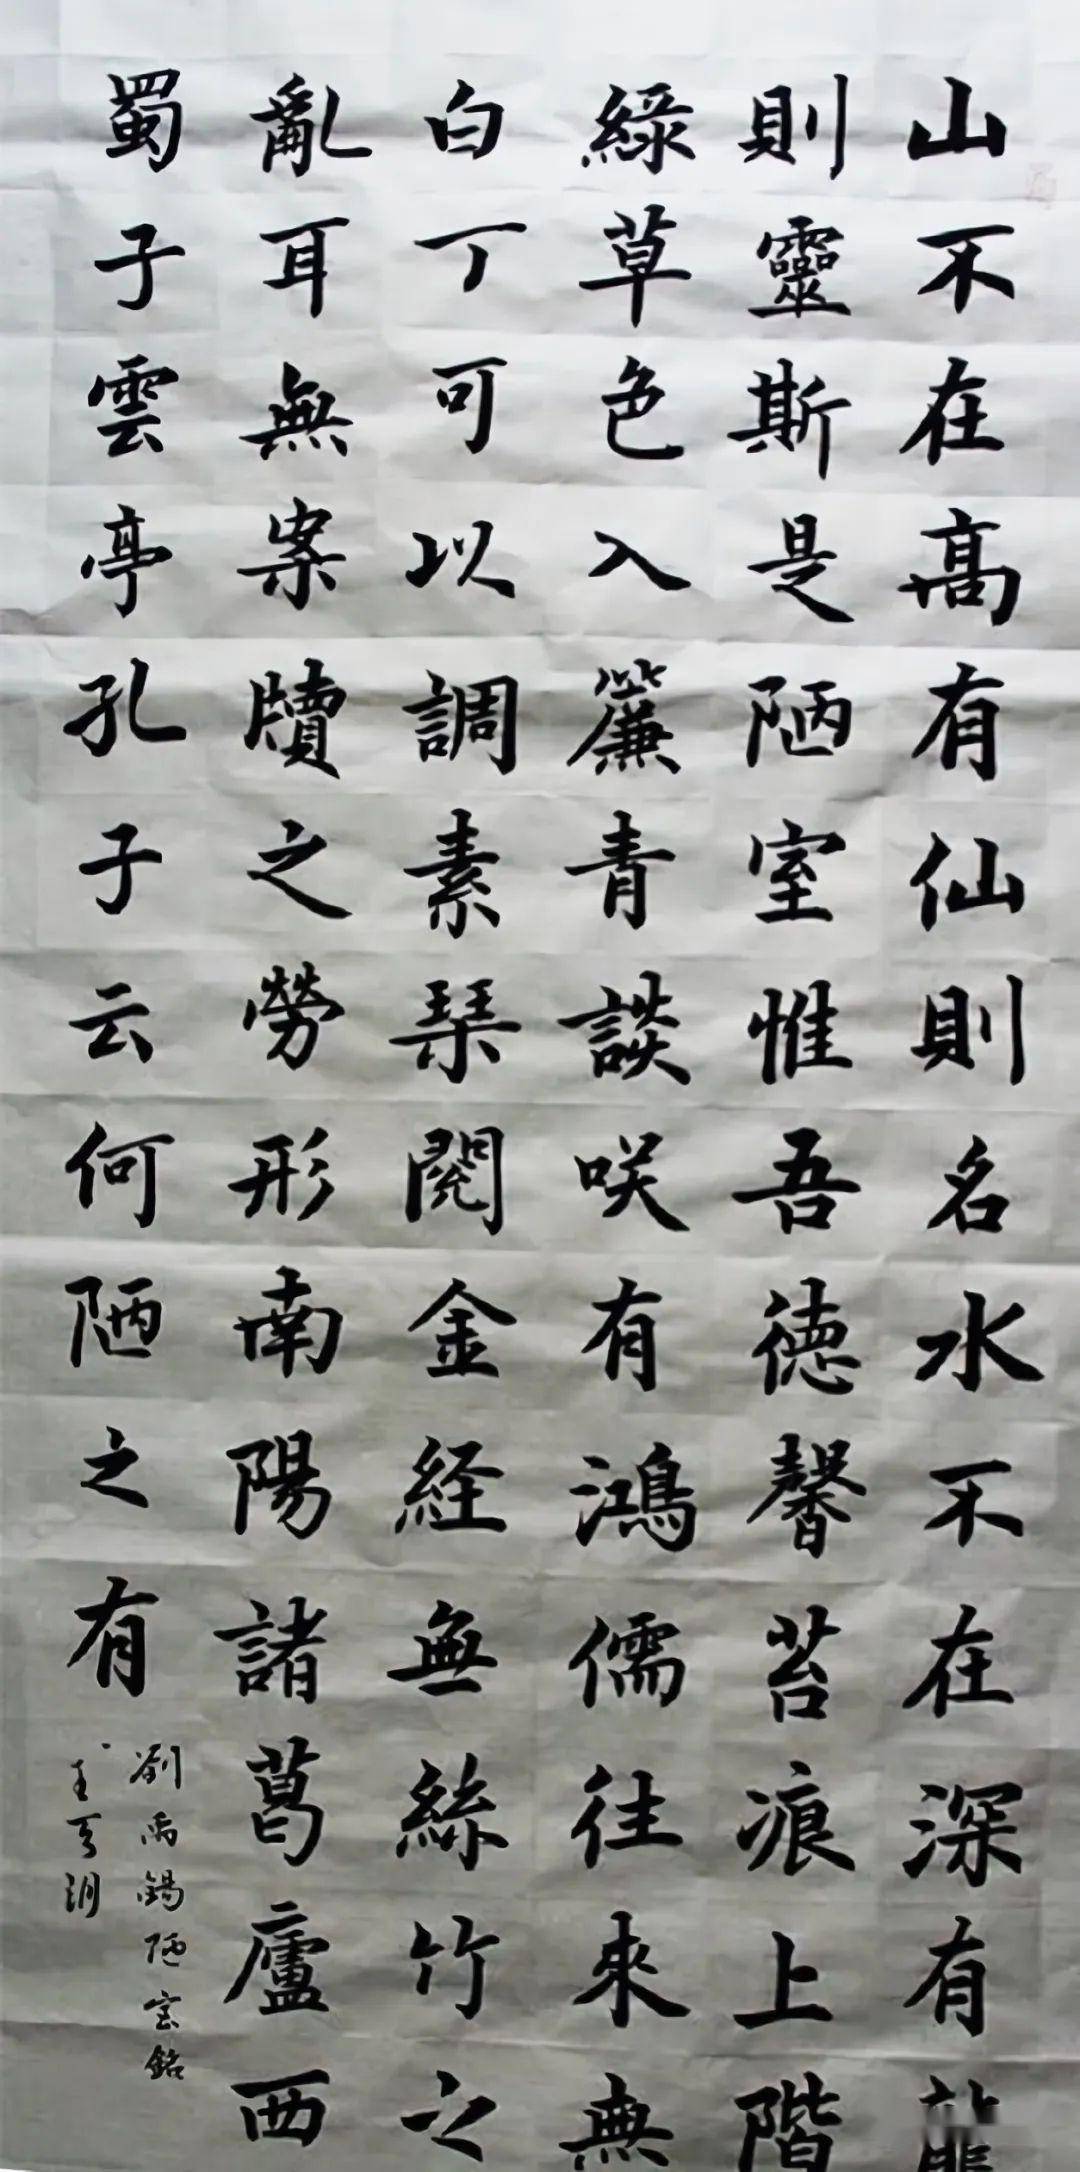 山不在高有仙則名水不在深有龍
則靈斯是陋室惟吾德馨苔痕上階
綠草色入簾青談咲有鴻儒往來無
白丁可以調素琴閱金経無絲竹之
亂耳無案牘之勞形南陽諸葛廬西
蜀子雲亭孔子云何陋之有
劉禹錫陋室銘